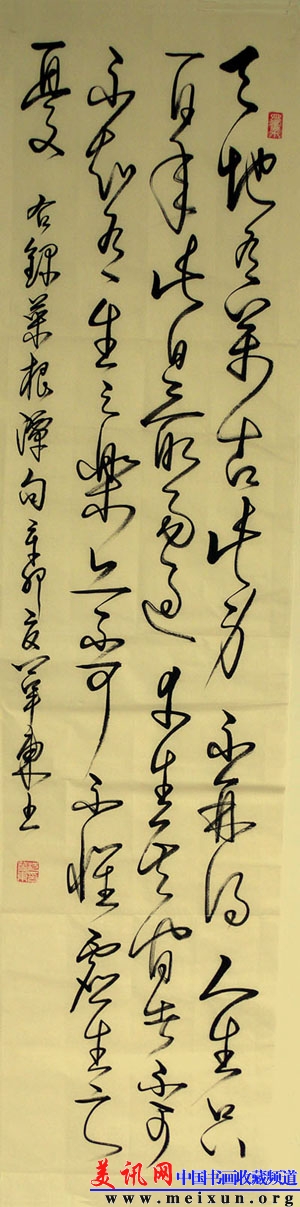 天地有萬古此身不再得人生只
百年此日最易過幸生其間者不可
不知有生之樂亦不可不懷虛生之
憂 右錄菜根譚句辛卯夏
美讯网 中国书画收藏频道
www.meixun.org